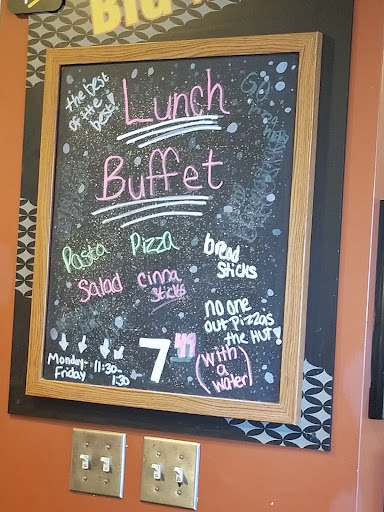 the best
of the
best!
Lunch
Buffet
Pasta Pizza
bread
sticks
Salad cinna
sticks
no one
out Pizzas
the HUT!
7 99
(with
a
water)
Monday-
Friday
11:30-
1:30